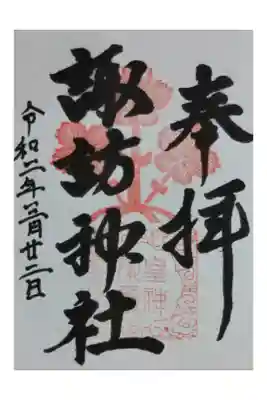 奉拝
諏訪神社
令和二年三月廿二日